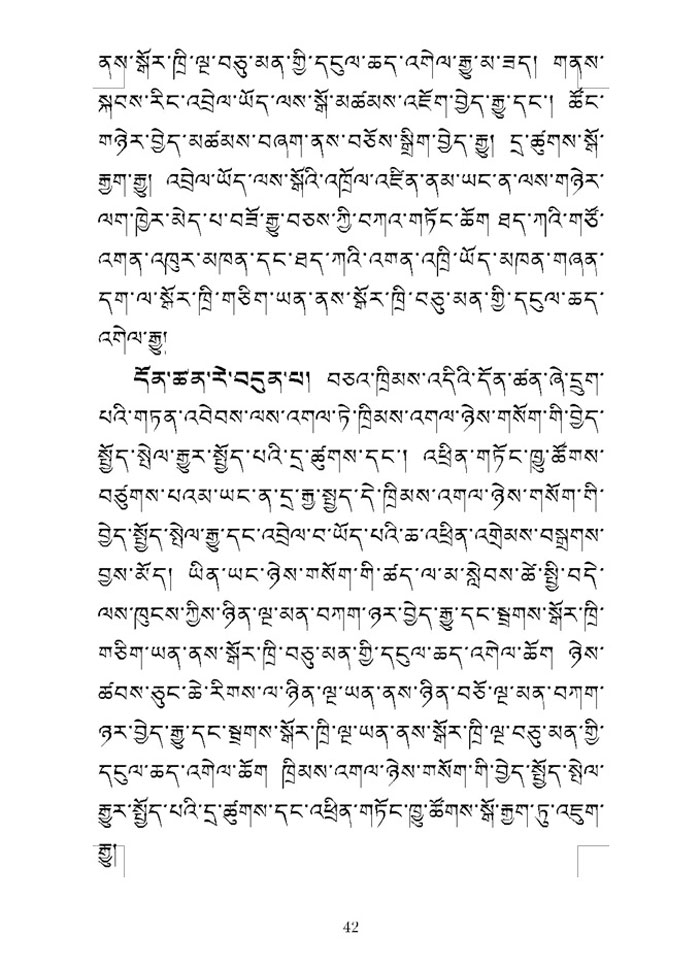 ནས་སྒོར་ཁྲི་ལྔ་བཅུ་མན་གྱི་དངུལ་ཆད་འགེལ་རྒྱུ་མ་ཟད། གནས་
སྐབས་རིང་འབྲེལ་ཡོད་ལས་སྒོ་མཚམས་འཇོག་བྱེད་རྒྱུ་དང་། ཚོང་
གཉེར་བྱེད་མཚམས་བཞག་ནས་བཅོས་སྒྲིག་བྱེད་རྒྱུ། དྲ་ཚུགས་སྒོ་
རྒྱག་རྒྱུ། འབྲེལ་ཡོད་ལས་སྒོའི་འཁྲོལ་འཛིན་ནམ་ཡང་ན་ལས་གཉེར་
ལག་ཁྱེར་མེད་པ་བཟོ་རྒྱུ་བཅས་ཀྱི་བཀའ་གཏོང་ཆོག ཐད་ཀའི་གཙོ་
འགན་འཁུར་མཁན་དང་ཐད་ཀའི་འགན་འཁྲི་ཡོད་མཁན་གཞན་
དག་ལ་སྒོར་ཁྲི་གཅིག་ཡན་ནས་སྒོར་ཁྲི་བཅུ་མན་གྱི་དངུལ་ཆད་
འགེལ་རྒྱུ།
དོན་ཚན་རེ་བདུན་པ། བཅའ་ཁྲིམས་འདིའི་དོན་ཚན་ཞེ་དྲུག་
པའི་གཏན་འབེབས་ལས་འགལ་ཏེ་ཁྲིམས་འགལ་ཉེས་གསོག་གི་བྱེད་
སྤྱོད་སྤེལ་རྒྱུར་སྤྱོད་པའི་དྲ་ཚུགས་དང་། འཕྲིན་གཏོང་ཁྱུ་ཚོགས་
བཙུགས་པའམ་ཡང་ན་དྲ་རྒྱ་སྤྱད་དེ་ཁྲིམས་འགལ་ཉེས་གསོག་གི་
བྱེད་སྤྱོད་སྤེལ་རྒྱུ་དང་འབྲེལ་བ་ཡོད་པའི་ཆ་འཕྲིན་འགྲེམས་བསྒྲགས་
བྱས་མོད། ཡིན་ཡང་ཉེས་གསོག་གི་ཚད་ལ་མ་སླེབས་ཚེ་སྤྱི་བདེ་
ལས་ཁུངས་ཀྱིས་ཉིན་ལྔ་མན་བཀག་ཉར་བྱེད་རྒྱུ་དང་སྦྲགས་སྒོར་ཁྲི་
གཅིག་ཡན་ནས་སྒོར་ཁྲི་བཅུ་མན་གྱི་དངུལ་ཆད་འགེལ་ཆོག ཉེས་
ཚབས་ཅུང་ཆེ་རིགས་ལ་ཉིན་ལྔ་ཡན་ནས་ཉིན་བཅོ་ལྔ་མན་བཀག་
ཉར་བྱེད་རྒྱུ་དང་སྦྲགས་སྒོར་ཁྲི་ལྔ་ཡན་ནས་སྒོར་ཁྲི་ལྔ་བཅུ་མན་གྱི་
དངུལ་ཆད་འགེལ་ཆོག ཁྲིམས་འགལ་ཉེས་གསོག་གི་བྱེད་སྤྱོད་སྤེལ་
རྒྱུར་སྤྱོད་པའི་དྲ་ཚུགས་དང་འཕྲིན་གཏོང་ཁྱུ་ཚོགས་སྒོ་རྒྱག་ཏུ་འཇུག་
རྒྱུ།
42